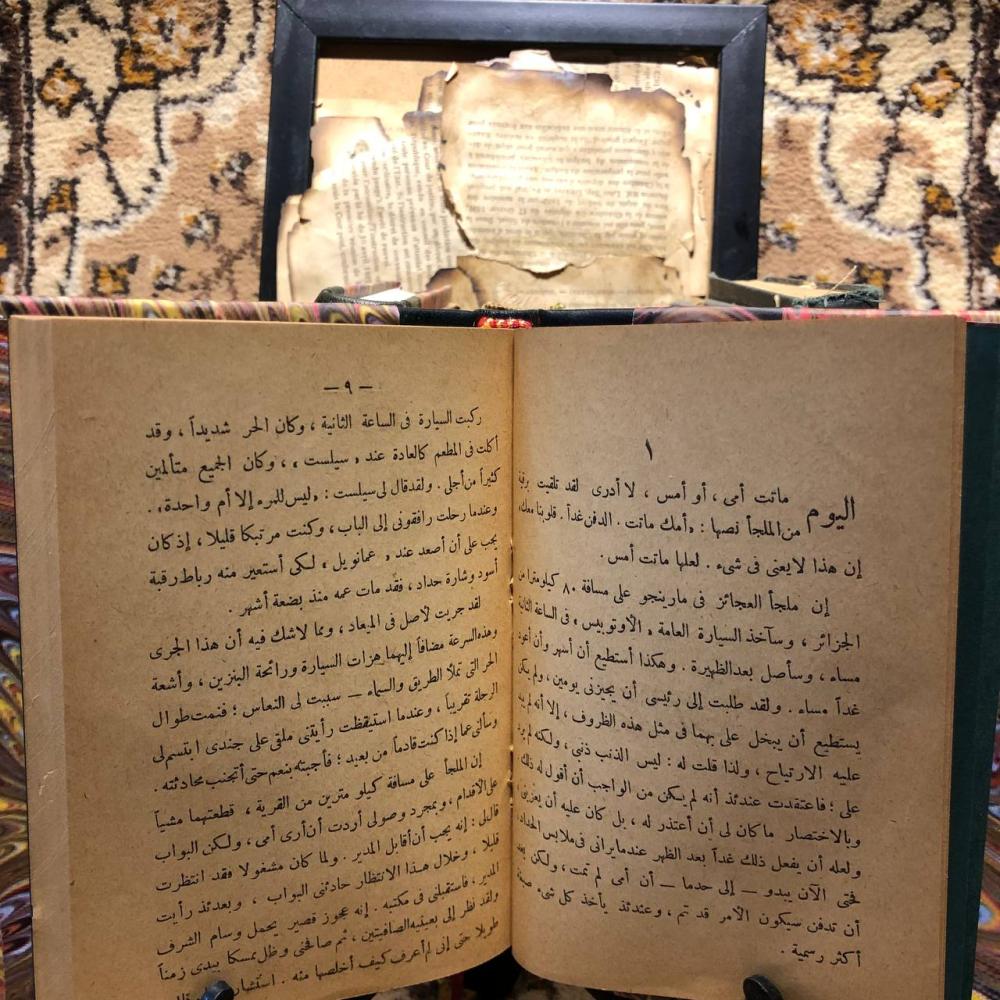 ١
اليوم ماتت أمى ، أو أمس ، لا أدرى لقد تلقيت برقية
من الملجأ نصها : «أمك ماتت . الدفن غداً . قلوبنا معك»
إن هذا لا يعنى فى شىء . لعلها ماتت أمس .
إن ملجأ العجائز فى مارينجو على مسافة ٨٠ كيلومترا من
الجزائر ، وسآخذ السيارة العامة « الأوتوبيس » فى الساعة الثانية
مساء ، وسأصل بعد الظهيرة . وهكذا أستطيع أن أسهر وأن أعود
غداً مساء . ولقد طلبت إلى رئيسى أن يجيزنى يومين ، ولم يكن
يستطيع أن يبخل على بهما فى مثل هذه الظروف ، إلا أنه لم يبد
عليه الارتياح ، ولذا قلت له : ليس الذنب ذنبي ، ولكنه لم يرد
على ؛ فاعتقدت عندئذ أنه لم يكن من الواجب أن أقول له ذلك
وبالاختصار ما كان لى أن أعتذر له ، بل كان عليه أن يعزينى ،
ولعله أن يفعل ذلك غداً بعد الظهر عندما يرانى فى ملابس الحداد ،
فحتى الآن يبدو — إلى حدما — أن أمى لم تمت ، ولكن بعد
أن تدفن سيكون الأمر قد تم ، وعندئذ يأخذ كل شىء صبغة
أكثر رسمية .
— ٩ —
ركبت السيارة فى الساعة الثانية ، وكان الحر شديداً ، وقد
أكلت فى المطعم كالعادة عند « سيلست » ، وكان الجميع متألمين
كثيراً من أجلى . ولقد قال لى سيلست : «ليس للمرء إلا أم واحدة» .
وعندما رحلت رافقونى إلى الباب ، وكنت مرتبكا قليلا ، إذ كان
يجب على أن أصعد عند « عمانويل » لكى أستعير منه رباط رقبة
أسود وشارة حداد ، فقد مات عمه منذ بضعة أشهر .
لقد جريت لأصل فى الميعاد ، ومما لاشك فيه أن هذا الجرى
وهذه السرعة مضافاً إليهما هزات السيارة ورائحة البنزين ، وأشعة
الحر التى تملأ الطريق والسماء — سببت لى النعاس ؛ فنمت طوال
الرحلة تقريباً ، وعندما استيقظت رأيتنى ملقى على جندى ابتسم لى
وسألنى عما إذا كنت قادماً من بعيد ؛ فأجبته بنعم حتى أتجنب محادثته .
إن الملجأ على مسافة كيلو مترين من القرية ، قطعتهما مشياً
على الأقدام ، وبمجرد وصولى أردت أن أرى أمى ، ولكن البواب
قال لى : إنه يجب أن أقابل المدير . ولما كان مشغولا فقد انتظرت
قليلا ، وخلال هذا الانتظار حادثنى البواب ، وبعدئذ رأيت
المدير ، فاستقبلنى فى مكتبه . إنه عجوز قصير يحمل وسام الشرف
ولقد نظر إلى بعينيه الصافيتين ، ثم صافحنى وظل ممسكا بيدى زمناً
طويلا حتى إنى لم أعرف كيف أخلصها منه .